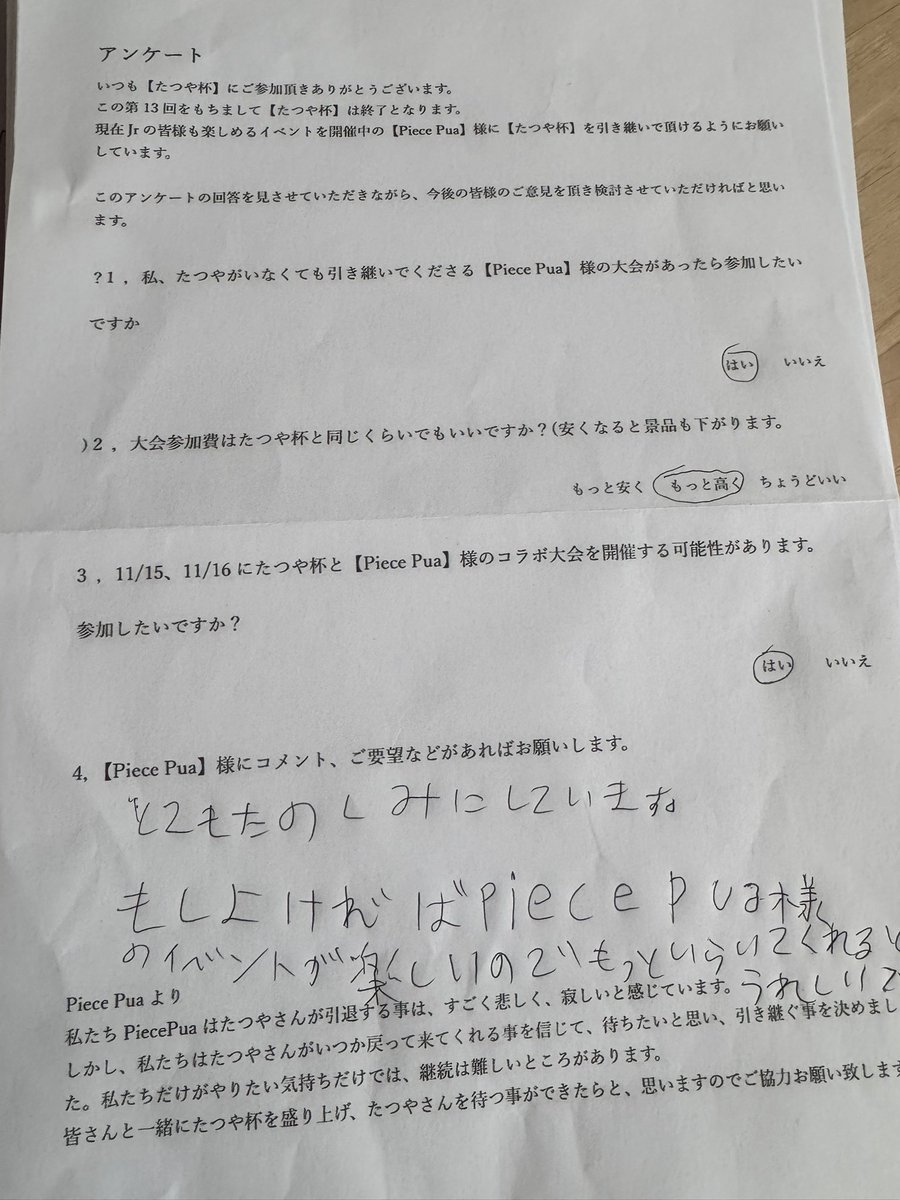 アンケート
いつも【たつや杯】にご参加頂きありがとうございます。
この第13回をもちまして【たつや杯】は終了となります。
現在Jrの皆様も楽しめるイベントを開催中の【Piece Pua】様に【たつや杯】を引き継いで頂けるようにお願い
しています。
このアンケートの回答を見させていただきながら、今後の皆様のご意見を頂き検討させていただければと思い
ます。
?1，私、たつやがいなくても引き継いでくださる【Piece Pua】様の大会があったら参加したい
ですか
はい　いいえ
)2，大会参加費はたつや杯と同じくらいでもいいですか？(安くなると景品も下がります。
もっと安く　もっと高く　ちょうどいい
3，11/15、11/16にたつや杯と【Piece Pua】様のコラボ大会を開催する可能性があります。
参加したいですか？
はい　いいえ
4,【Piece Pua】様にコメント、ご要望などがあればお願いします。
とてもたのしみにしています。
もしよければpiece pua様
のイベントが楽しいのでもっとひらいてくれると
うれしいで
Piece Puaより
私たちPiecePuaはたつやさんが引退する事は、すごく悲しく、寂しいと感じています。
しかし、私たちはたつやさんがいつか戻って来てくれる事を信じて、待ちたいと思い、引き継ぐ事を決めまし
た。私たちだけがやりたい気持ちだけでは、継続は難しいところがあります。
皆さんと一緒にたつや杯を盛り上げ、たつやさんを待つ事ができたらと、思いますのでご協力お願い致します